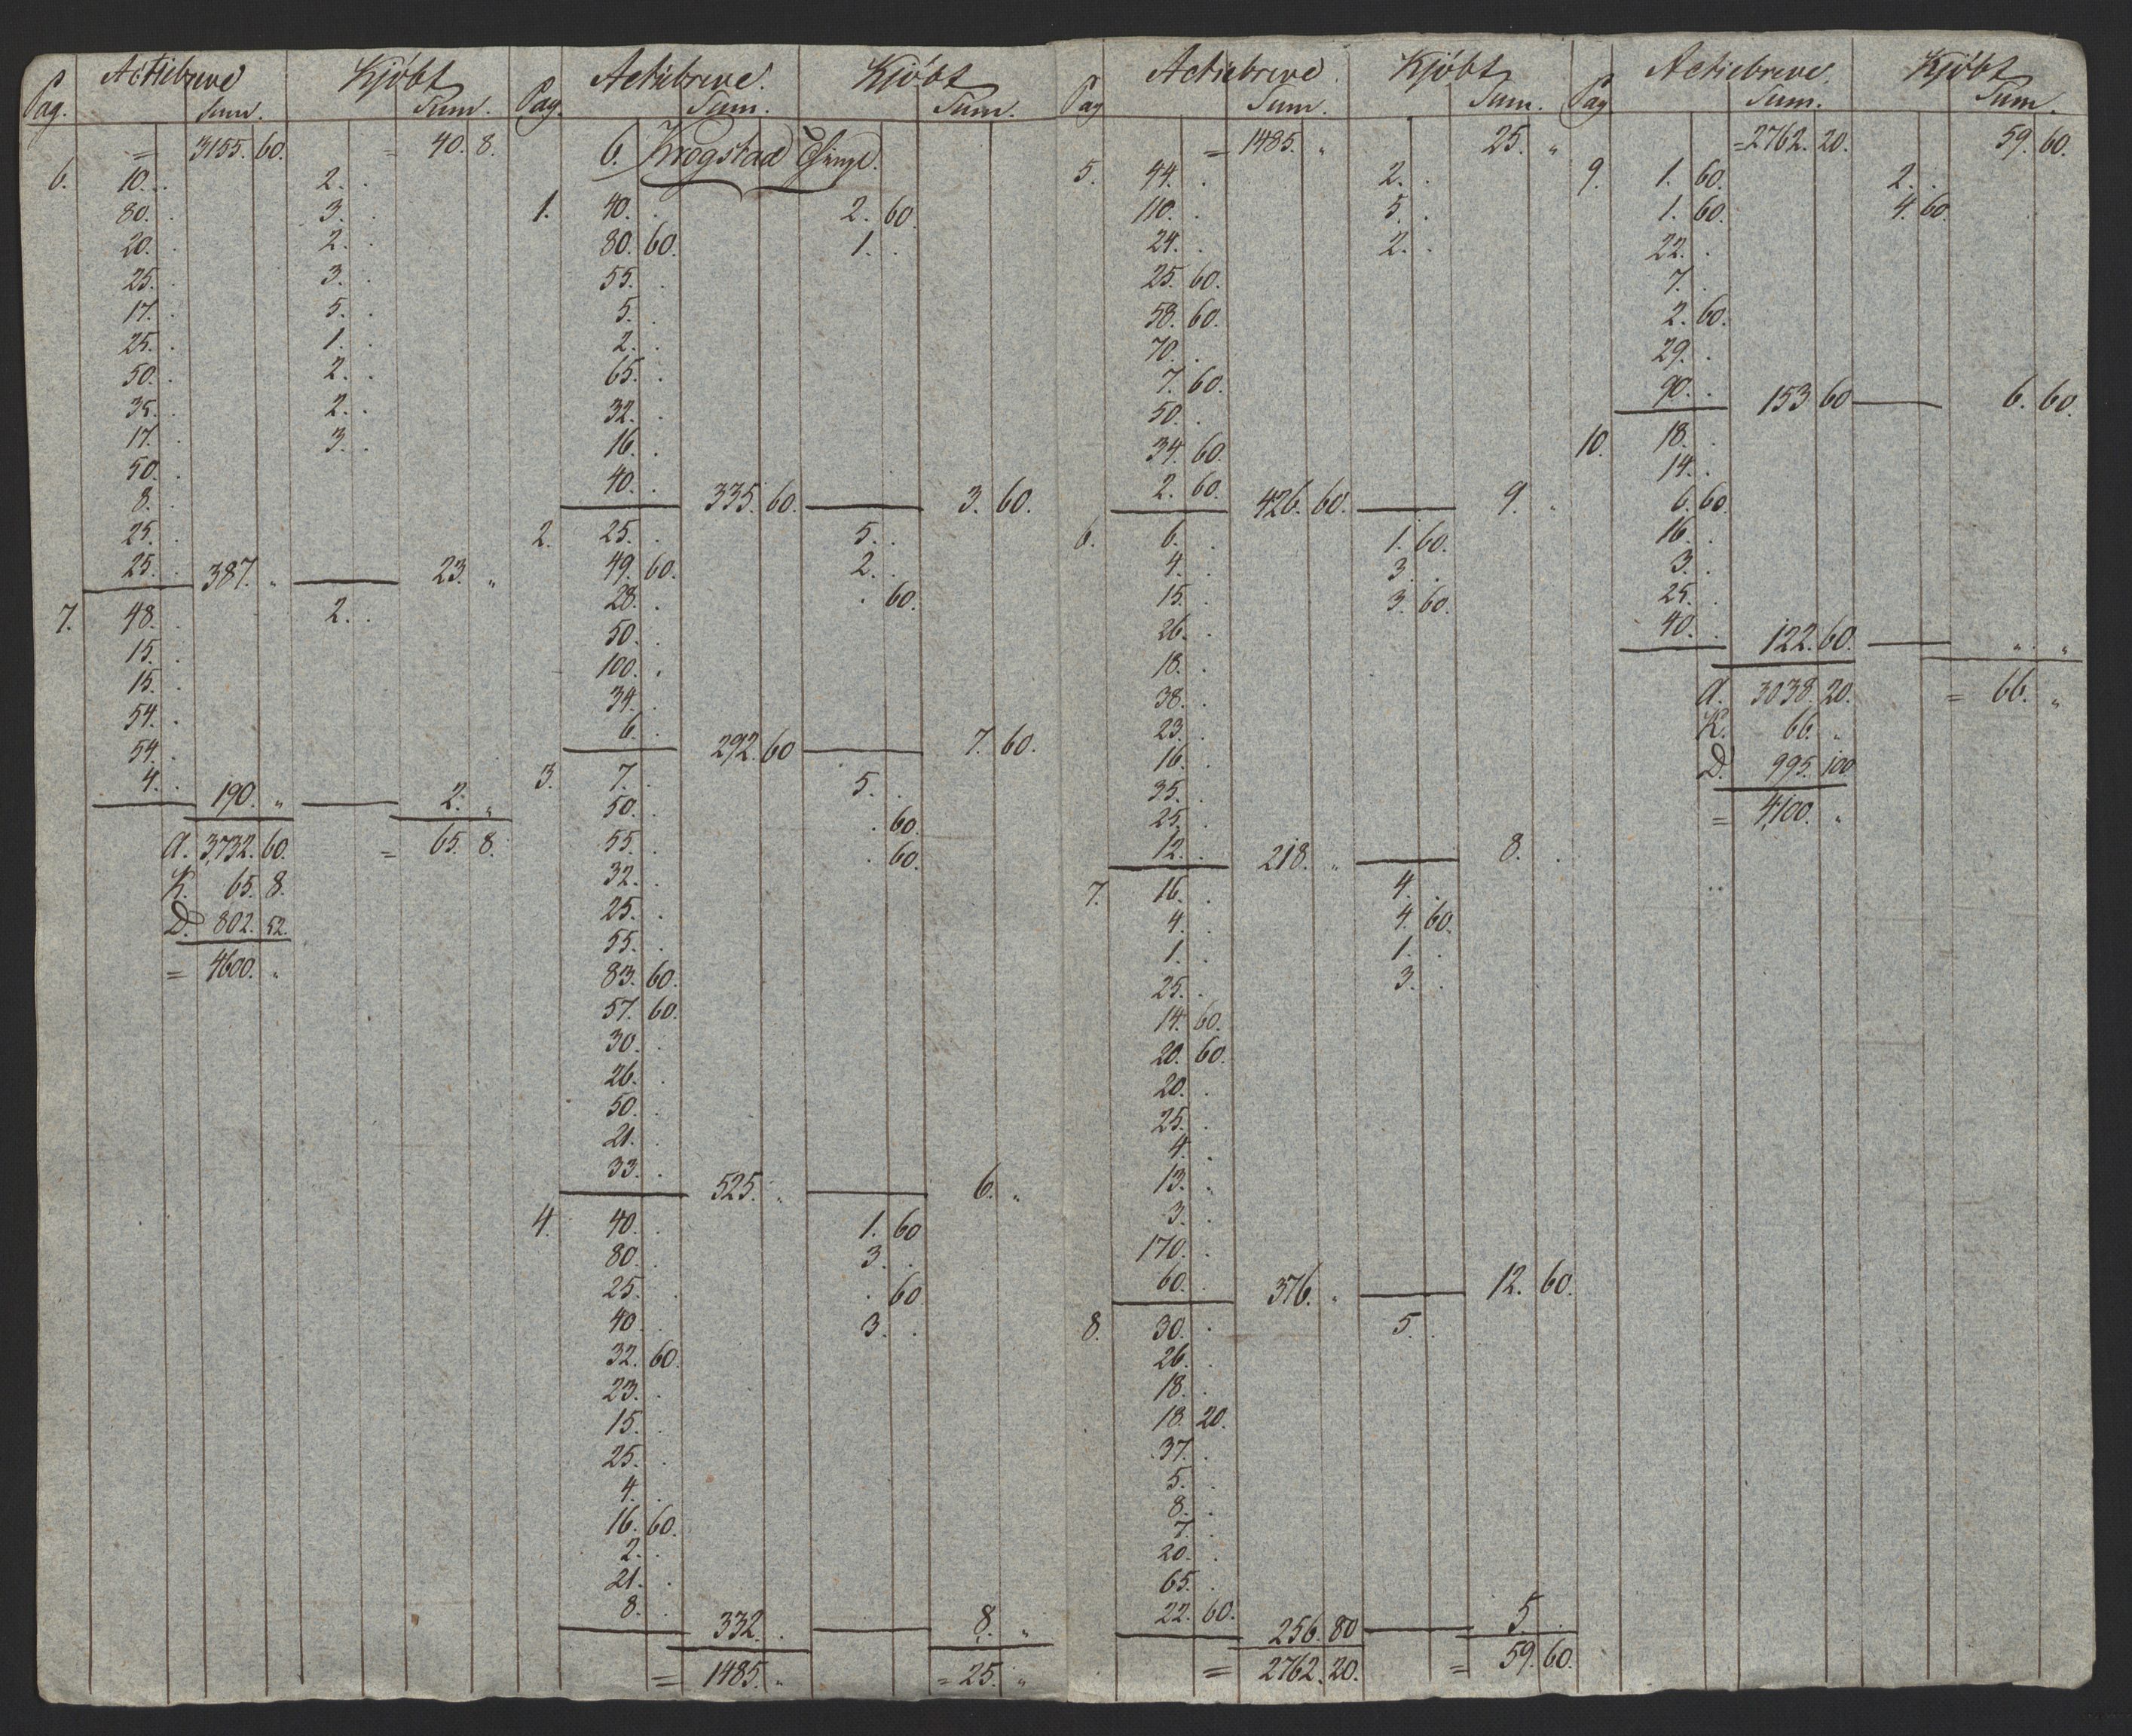 Pag. Actiebreve Sum. Kjöbt Sum.
= 3155. 60. = 40. 8.
6. 10. . 2. .
80. . 3. .
20. . 2. .
25. . 3. .
17. . 5. .
25. . 1. .
50. . 2. .
35. . 2. .
17. . 3. .
50. .
8. .
25. .
25. . 387. „ 23. „
7. 48. . 2. .
15. .
15. .
54. .
54. .
4. . 190. „ 2. „
A. 3732. 60. = 65. 8.
K. 65. 8.
D. 802. 52.
= 4600. „
Pag. Actiebreve. Sum. Kjöbt Sum.
6. Krogstad
1. 40. . 2. 60.
80. 60. 1. .
55. .
5. .
2. .
65. .
32. .
16. .
40. . 335. 60. 3. 60.
2. 25. . 5. .
49. 60. 2. .
28. . . 60.
50. .
100. .
34. .
6. . 292. 60 7. 60.
3. 7. . 5. .
50. . . 60.
55. . . 60.
32. .
25. .
55. .
83. 60.
57. 60.
30. .
26. .
50. .
21. .
33. . 525. „ 6. „
4. 40. . 1. 60
80. . 3. .
25. . . 60
40. . 3. .
32. 60.
23. .
15. .
25. .
4. .
16. 60.
2. .
21. .
8. . 332. . 8. „
= 1485. „ = 25. „
Pag Actiebreve. Sum. Kjöbt Sum.
= 1485. „ 25. „
5. 44. . 2. .
110. . 5. .
24. . 2. .
25. 60.
58. 60.
70. .
7. 60.
50. .
34. 60.
2. 60. 426. 60. 9. .
6. 6. . 1. 60.
4. . 3. .
15. . 3. 60.
26. .
18. .
38. .
23. .
16. .
35. .
25. .
12. . 218. „ 8. .
7. 16. . 4. .
4. . 4. 60.
1. . 1. .
25. . 3. .
14. 60.
20. 60.
20. .
25. .
4. .
13. .
3. .
170. .
60. . 376. „ 12. 60.
8. 30. . 5. .
26. .
18. .
18. 20.
37. .
5. .
8. .
7. .
20. .
65. .
22. 60. 256. 80 5 .
= 2762. 20. = 59. 60.
Pag Actiebreve. Sum. Kjöbt Sum.
= 2762. 20. 59. 60.
9. 1. 60. 2. .
1. 60. 4. 60.
22. .
7. .
2. 60.
29. .
90. . 153 60 6. 60.
10. 18. .
14. .
6. 60.
16. .
3. .
25. .
40. . 122. 60. „ „
A. 3038. 20. = 66. „
K. 66. „
D. 995. 100
= 4100. „